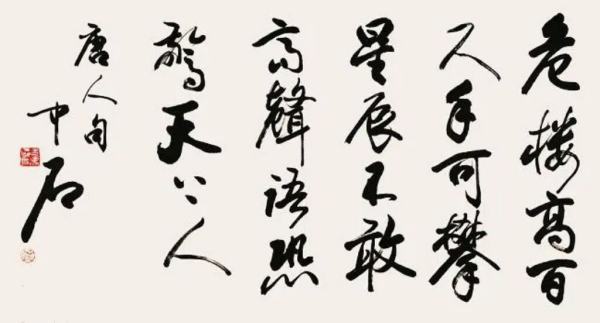 危楼高百
尺手可攀
星辰不敢
高聲語恐
驚天上人
唐人句
中石